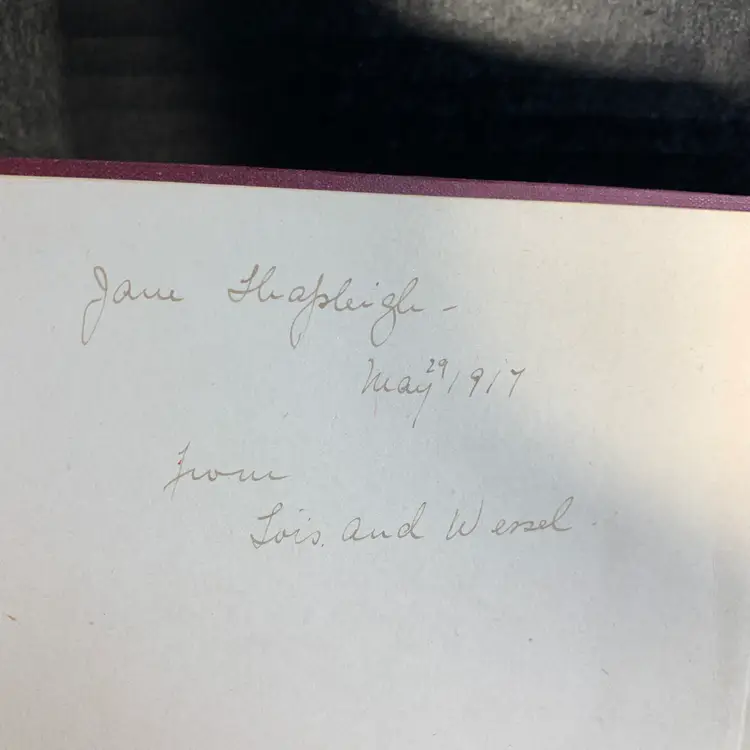 Jane Shapleigh -
May 29 1917
from
Lois. and Wessel